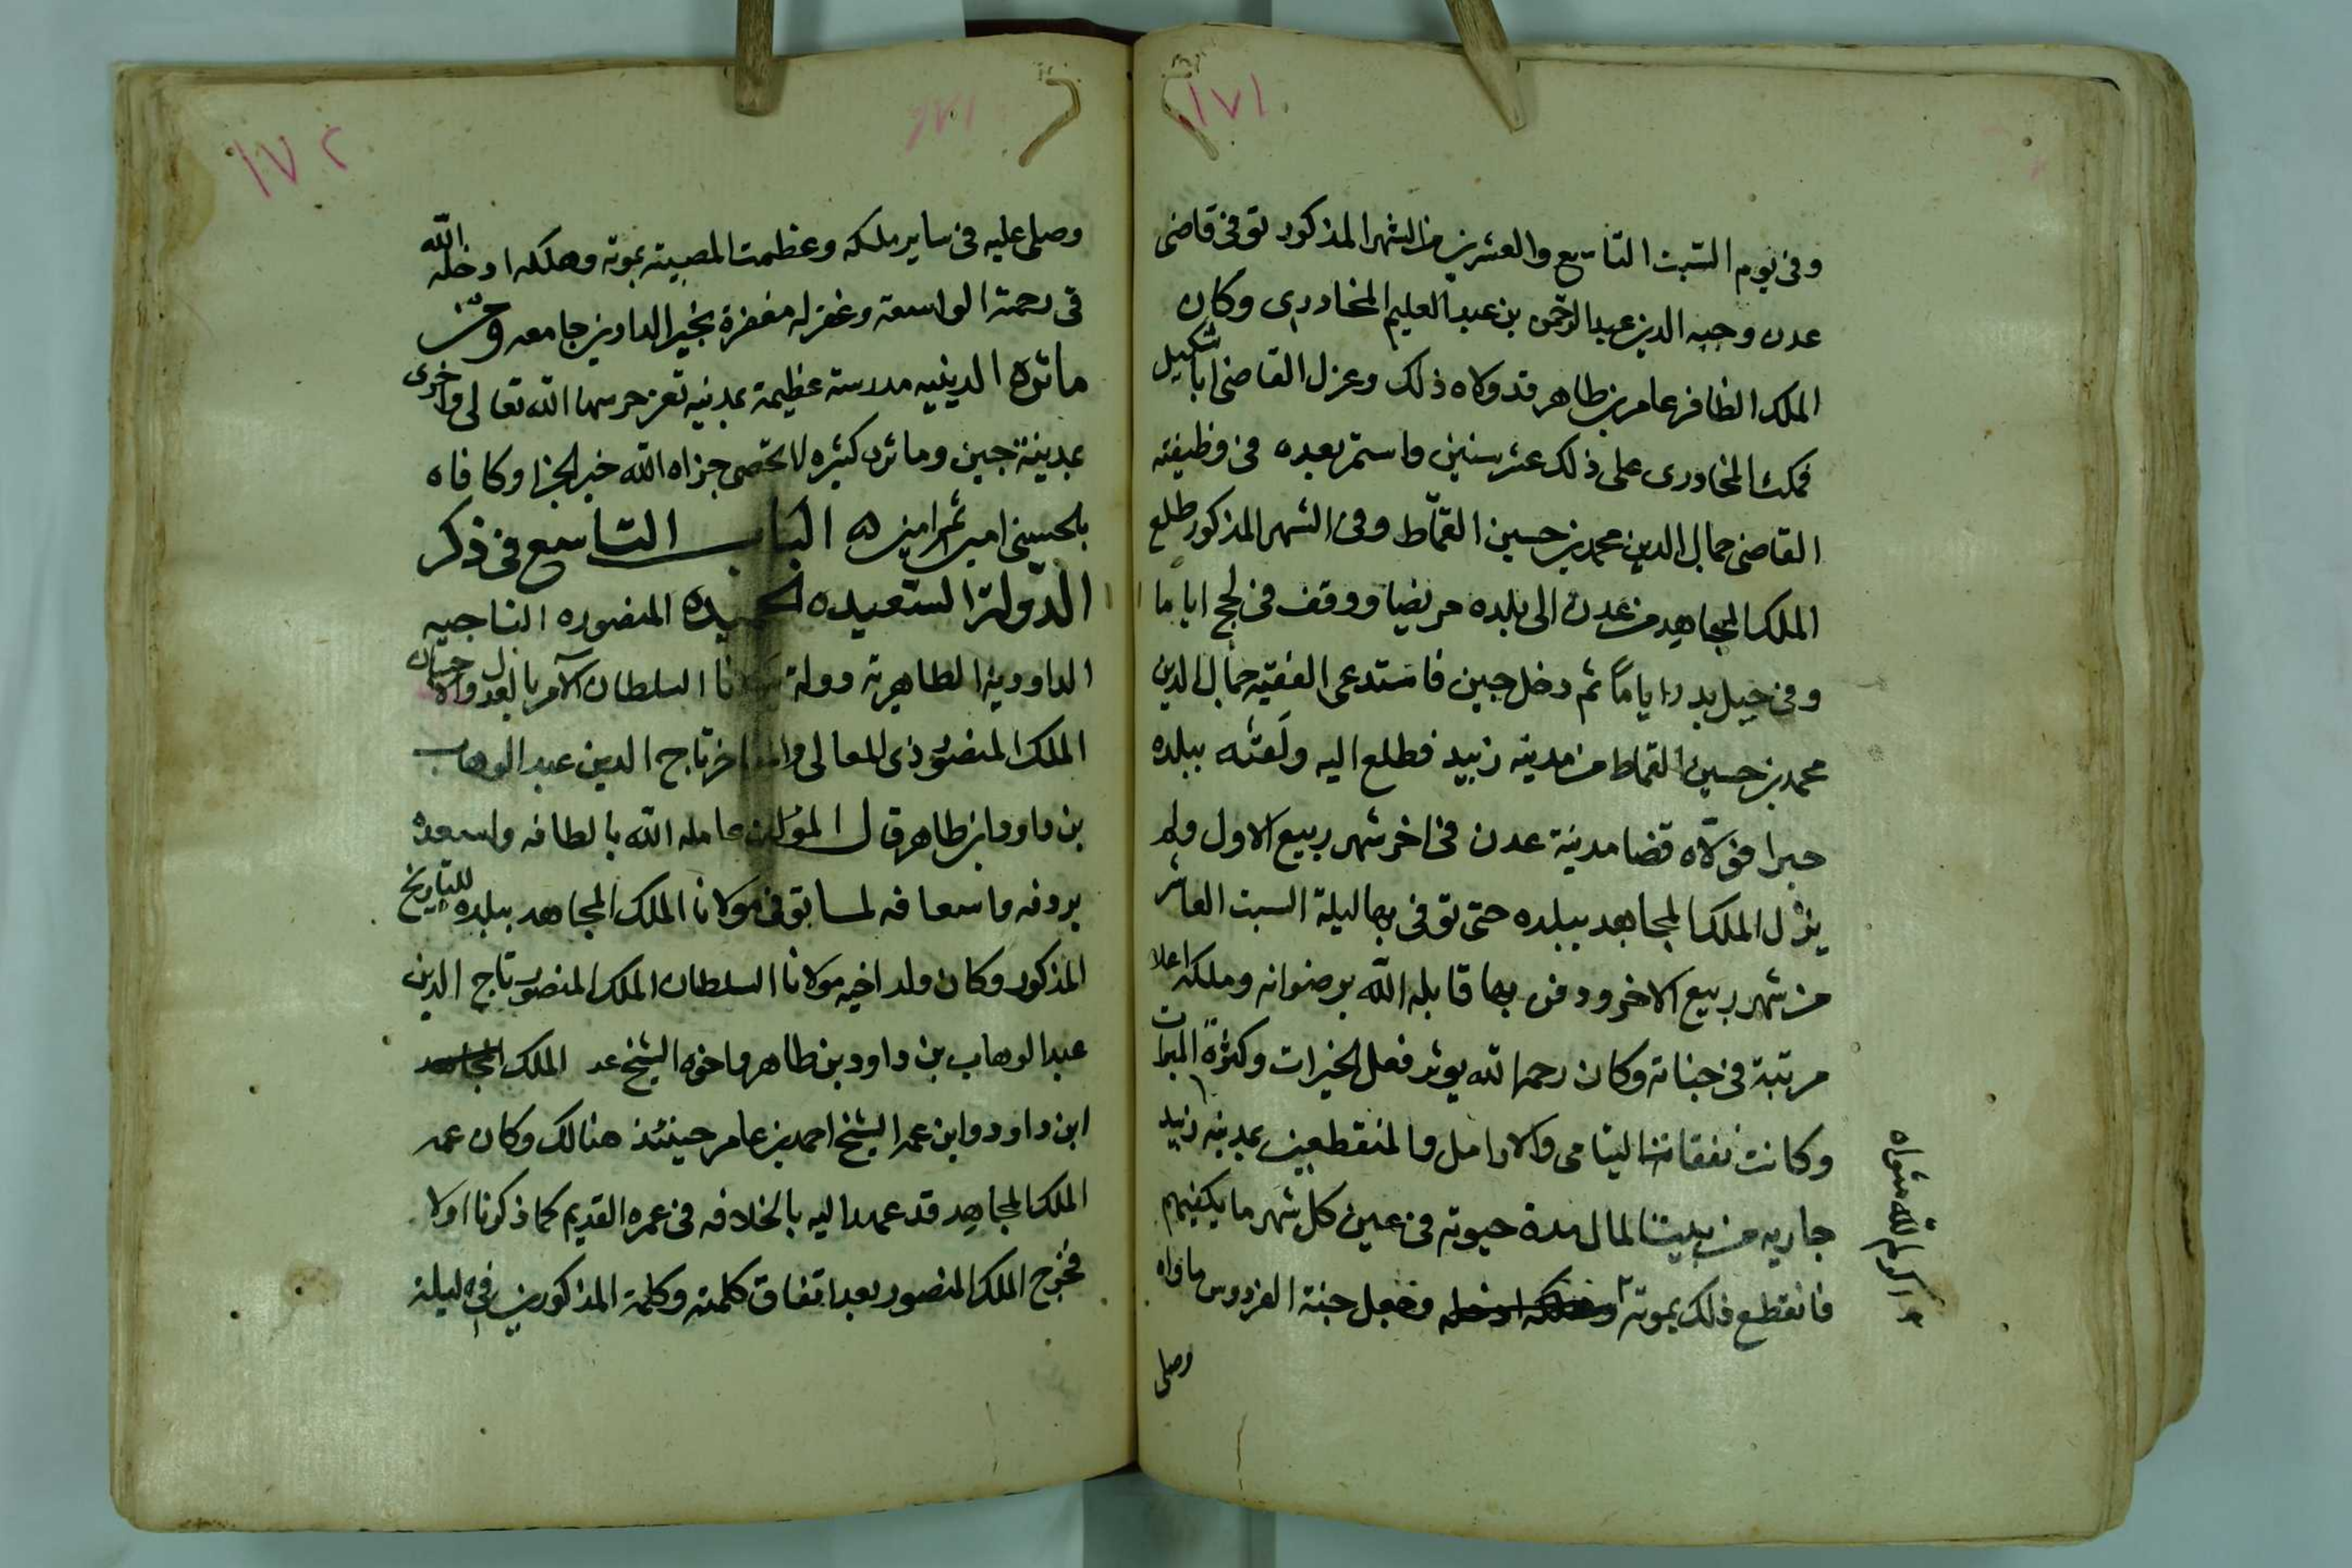 ١٧١
وفى يوم السبت التاسع والعشرين من الشهر المذكور توفى قاضى
عدن وجيه الدين عبد الرحمن بن عبد العليم المخادرى وكان
الملك الظافر عامر بن طاهر قد ولاه ذلك وعزل القاضى ابا شكيل
فمكث المخادرى على ذلك عشر سنين واستمر بعده فى وظيفته
القاضى جمال الدين محمد بن حسين القماط وفى الشهر المذكور طلع
الملك المجاهد من عدن الى بلده مريضا ووقف فى لحج اياما
وفى اياماً ثم دخل جبن فاستدعى الفقيه جمال الدين
محمد بن حسين القماط من مدينه زبيد فطلع اليه ولقيه ببلده
جبن فولاه قضا مدينة عدن فى اخر شهر ربيع الاول ولم
يزل الملك المجاهد ببلده حتى توفى بها ليلة السبت العاشر
من شهر ربيع الاخر ودفن بها قابله الله برضوانه وملكه اعلا
مرتبة فى جناته وكان رحمه الله يوثر فعل الخيرات وكثرة المبرات
وكانت نفقات اليتامى والارامل والمنقطعين بمدينه زبيد
جاريه من بيت المال مدة حيوته فى عين كل شهر ما يكفيهم
فانقطع ذلك بموته وجعل جنة الفردوس ماواه
واكرم الله مثواه
وصلى
١٧٢
وصلى عليه فى ساير ملكه وعظمت المصيبة بموته وهلكه ادخله الله
فى رحمته الواسعة وغفر له مغفرة بخير الدارين جامعه ومن
ماثره الدينيه مدرسة عظيمة بمدينه تعز حرسها الله تعالى واخرى
بمدينة جبن وماثره كثيره لا تحصى جزاه الله خير الجزا وكافاه
بالحسنى امين ثم امين الباب التاسع فى ذكر
الدولة السعيده الحميده المنصوره التاجيه
الداودية الطاهرية دولة مولانا السلطان الآمر بالعدل والاحسان
الملك المنصور ذى المعالى والمفاخر تاج الدين عبد الوهاب
بن داود ابن طاهر قال المؤلف عامله الله بالطافه واسعده
برفده واسعافه لما توفى مولانا الملك المجاهد ببلده للتاريخ
المذكور وكان ولد اخيه مولانا السلطان الملك المنصور تاج الدين
عبد الوهاب بن داود بن طاهر واخوه الشيخ عبد الملك
ابن داود وابن عمه الشيخ احمد بن عامر حينئذ هنالك وكان عمه
الملك المجاهد قد عهد اليه بالخلافه فى عمره القديم كما ذكرنا اولا
فخرج الملك المنصور بعد اتفاق كلمته وكلمة المذكورين فى ليلة